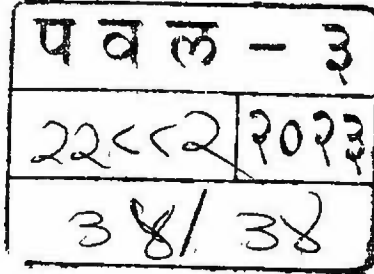 प व ल - ३
२२८८२ २०२३
३४/३४